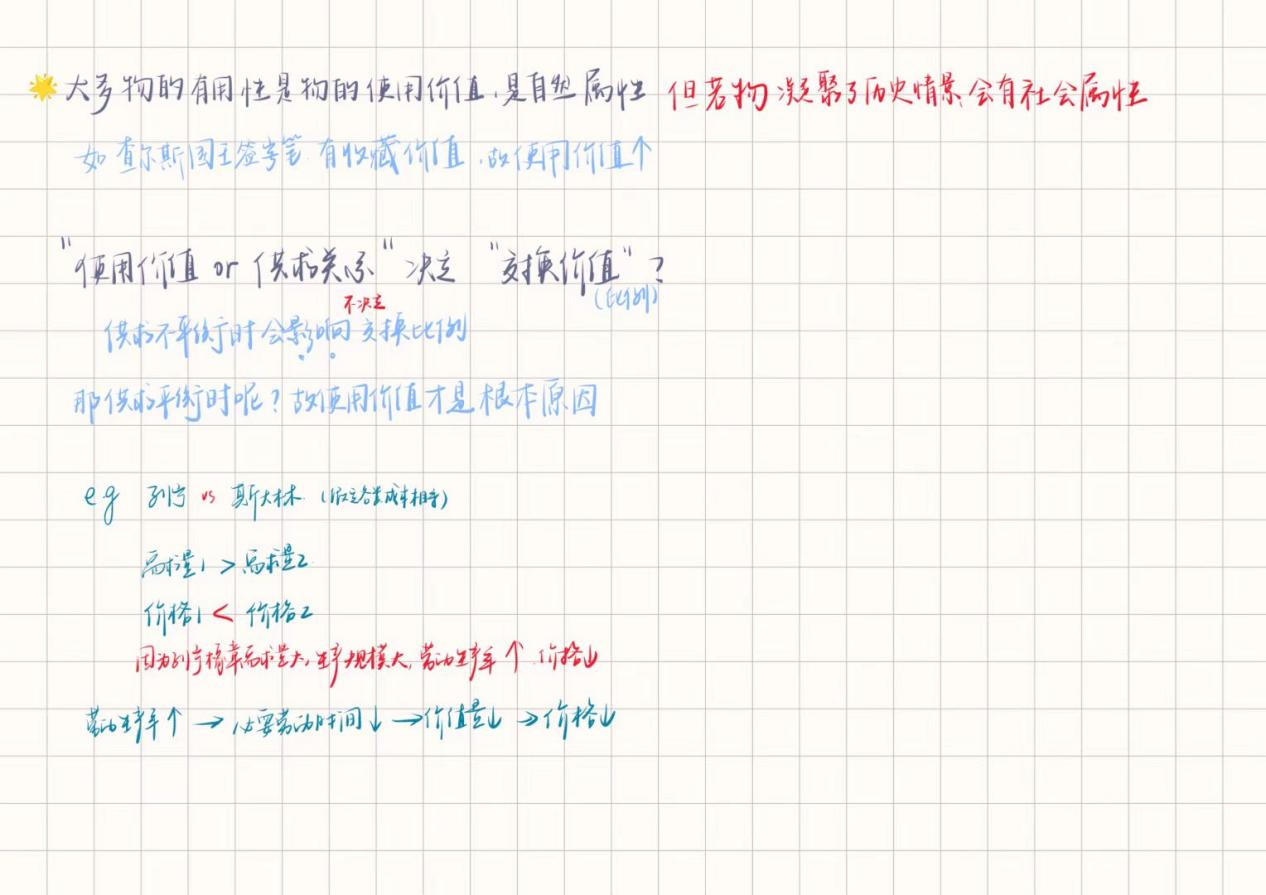 大多物的有用性是物的使用价值,是自然属性 但若物凝聚了历史情景,会有社会属性
如查尔斯国王签字笔 有收藏价值,故使用价值↑
"使用价值 or 供求关系" 决定 "交换价值"?
不决定 (比例)
供求不平衡时会影响交换比例
那供求平衡时呢?故使用价值才是根本原因
eg 列宁 vs 斯大林 (假定各类成本相等)
需求量1 > 需求量2
价格1 < 价格2
因为列宁 需求量大,生产规模大,劳动生产率↑,价格↓
劳动生产率↑ → 必要劳动时间↓ → 价值量↓ → 价格↓